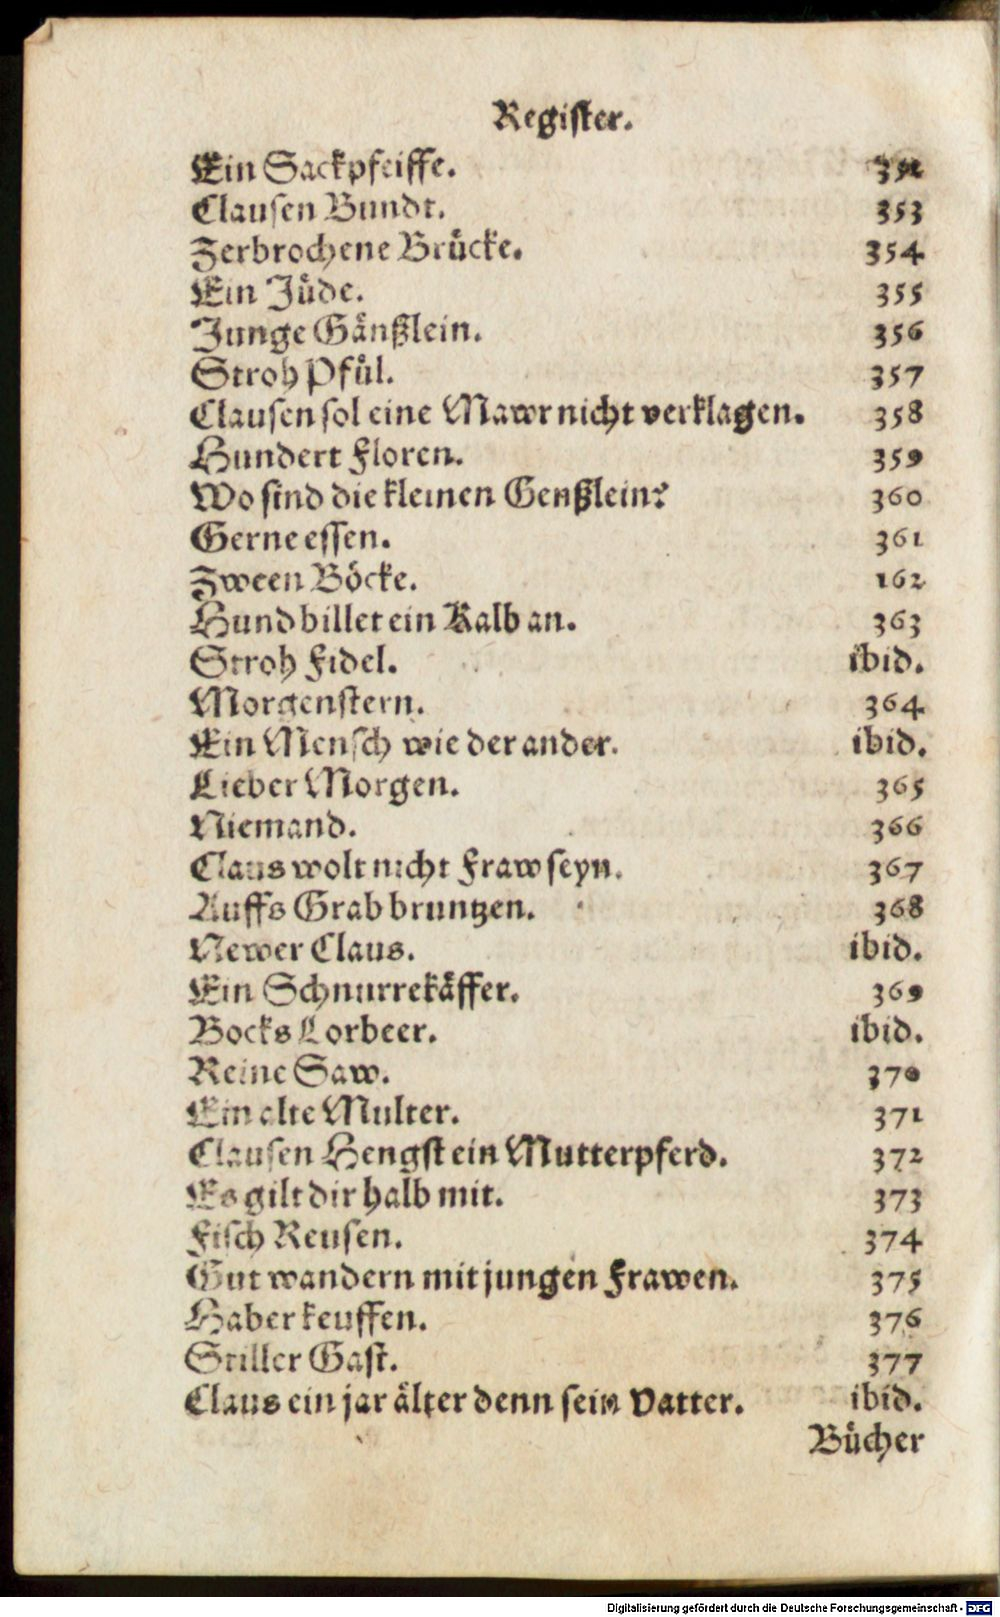 Register.
Ein Sackpfeiffe.
Clausen Bundt. 353
Zerbrochene Brücke. 354
Ein Jüde. 355
Junge Gänßlein. 356
Stroh Pfül. 357
Clausen sol eine Mawr nicht verklagen. 358
Hundert Floren. 359
Wo sind die kleinen Genßlein? 360
Gerne essen. 361
Zween Böcke. 162
Hund billet ein Kalb an. 363
Stroh Fidel. ibid.
Morgenstern. 364
Ein Mensch wie der ander. ibid.
Lieber Morgen. 365
Niemand. 366
Claus wolt nicht Fraw seyn. 367
Auffs Grab bruntzen. 368
Newer Claus. ibid.
Ein Schnurrekäffer. 369
Bocks Lorbeer. ibid.
Reine Saw. 370
Ein alte Multer. 371
Clausen Hengst ein Mutterpferd. 372
Es gilt dir halb mit. 373
Fisch Reusen. 374
Gut wandern mit jungen Frawen. 375
Haber keuffen. 376
Stiller Gast. 377
Claus ein jar älter denn sein Vatter. ibid.
Bücher
Digitalisierung gefördert durch die Deutsche Forschungsgemeinschaft - DFG